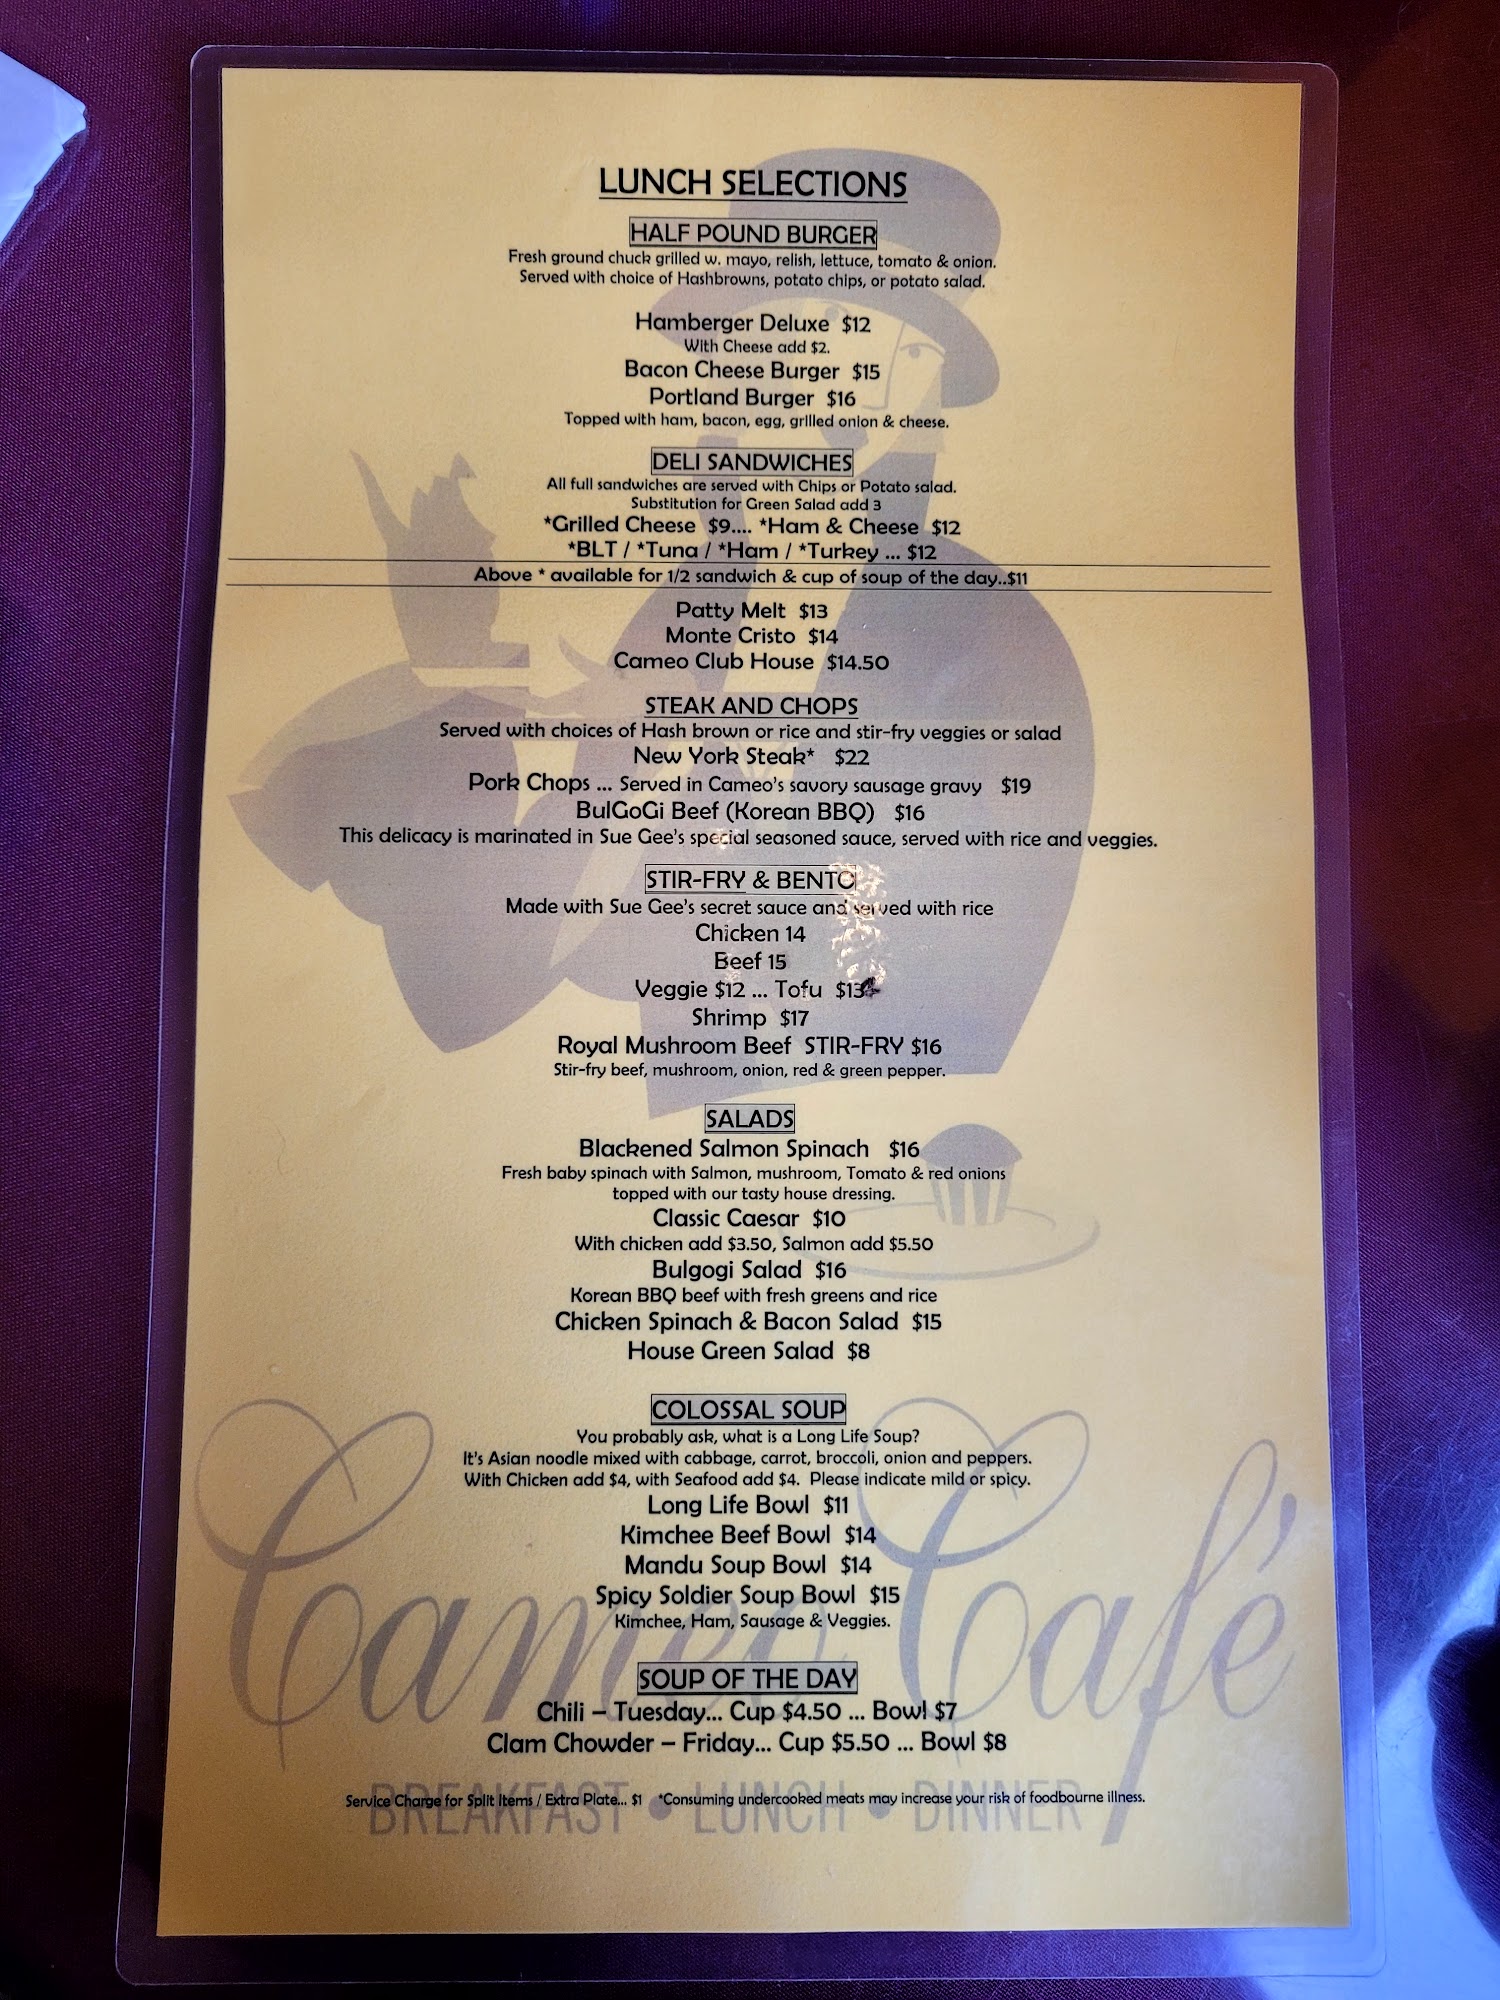 LUNCH SELECTIONS
HALF POUND BURGER
Fresh ground chuck grilled w. mayo, relish, lettuce, tomato & onion.
Served with choice of Hashbrowns, potato chips, or potato salad.
Hamberger Deluxe $12
With Cheese add $2.
Bacon Cheese Burger $15
Portland Burger $16
Topped with ham, bacon, egg, grilled onion & cheese.
DELI SANDWICHES
All full sandwiches are served with Chips or Potato salad.
Substitution for Green Salad add 3
*Grilled Cheese $9.... *Ham & Cheese $12
*BLT / *Tuna / *Ham / *Turkey ... $12
Above * available for 1/2 sandwich & cup of soup of the day..$11
Patty Melt $13
Monte Cristo $14
Cameo Club House $14.50
STEAK AND CHOPS
Served with choices of Hash brown or rice and stir-fry veggies or salad
New York Steak* $22
Pork Chops ... Served in Cameo's savory sausage gravy $19
BulGoGi Beef (Korean BBQ) $16
This delicacy is marinated in Sue Gee's special seasoned sauce, served with rice and veggies.
STIR-FRY & BENTO
Made with Sue Gee's secret sauce and served with rice
Chicken 14
Beef 15
Veggie $12 ... Tofu $13
Shrimp $17
Royal Mushroom Beef STIR-FRY $16
Stir-fry beef, mushroom, onion, red & green pepper.
SALADS
Blackened Salmon Spinach $16
Fresh baby spinach with Salmon, mushroom, Tomato & red onions
topped with our tasty house dressing.
Classic Caesar $10
With chicken add $3.50, Salmon add $5.50
Bulgogi Salad $16
Korean BBQ beef with fresh greens and rice
Chicken Spinach & Bacon Salad $15
House Green Salad $8
COLOSSAL SOUP
You probably ask, what is a Long Life Soup?
It's Asian noodle mixed with cabbage, carrot, broccoli, onion and peppers.
With Chicken add $4, with Seafood add $4. Please indicate mild or spicy.
Long Life Bowl $11
Kimchee Beef Bowl $14
Mandu Soup Bowl $14
Spicy Soldier Soup Bowl $15
Kimchee, Ham, Sausage & Veggies.
Cameo Café
SOUP OF THE DAY
Chili – Tuesday... Cup $4.50 ... Bowl $7
Clam Chowder – Friday... Cup $5.50 ... Bowl $8
Service Charge for Split Items / Extra Plate... $1 *Consuming undercooked meats may increase your risk of foodbourne illness.
BREAKFAST • LUNCH • DINNER